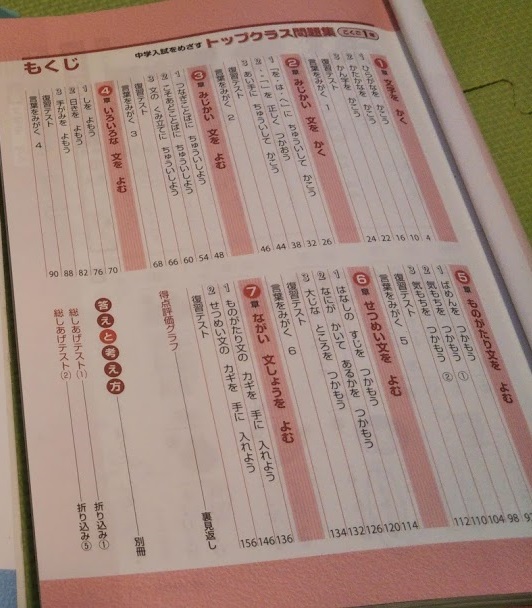 中学入試をめざす トップクラス問題集 こくご1年
もくじ
1章 文字を かく
1 ひらがなを かこう 4
2 かたかなを かこう 10
3 かん字を かこう 16
復習テスト 22
言葉をみがく 1 24
2章 みじかい 文を かく
1 「を・は・へ」に ちゅういして かこう 26
2 「、」「。」を 正しく つかおう 32
3 あい手に ちゅういして かこう 38
復習テスト 44
言葉をみがく 2 46
3章 みじかい 文を よむ
1 つなぎことばに ちゅういしよう 48
2 こそあどことばに ちゅういしよう 54
3 文の くみ立てに ちゅういしよう 60
復習テスト 66
言葉をみがく 3 68
4章 いろいろな 文を よむ
1 しを よもう 70
2 日きを よもう 76
3 手がみを よもう 82
復習テスト 88
言葉をみがく 4 90
5章 ものがたり文を よむ
1 ばめんを つかもう
2 気もちを つかもう ① 98
3 気もちを つかもう ② 104
復習テスト 110
言葉をみがく 5 112
6章 せつめい文を よむ
1 はなしの すじを つかもう 114
2 なにが かいて あるかを つかもう 120
3 大じな ところを つかもう 126
復習テスト 132
言葉をみがく 6 134
7章 ながい 文しょうを よむ
1 ものがたり文の カギを 手に 入れよう 136
2 せつめい文の カギを 手に 入れよう 146
復習テスト 156
得点評価グラフ 裏見返し
答えと考え方 別冊
総しあげテスト① 折り込み①
総しあげテスト② 折り込み⑤